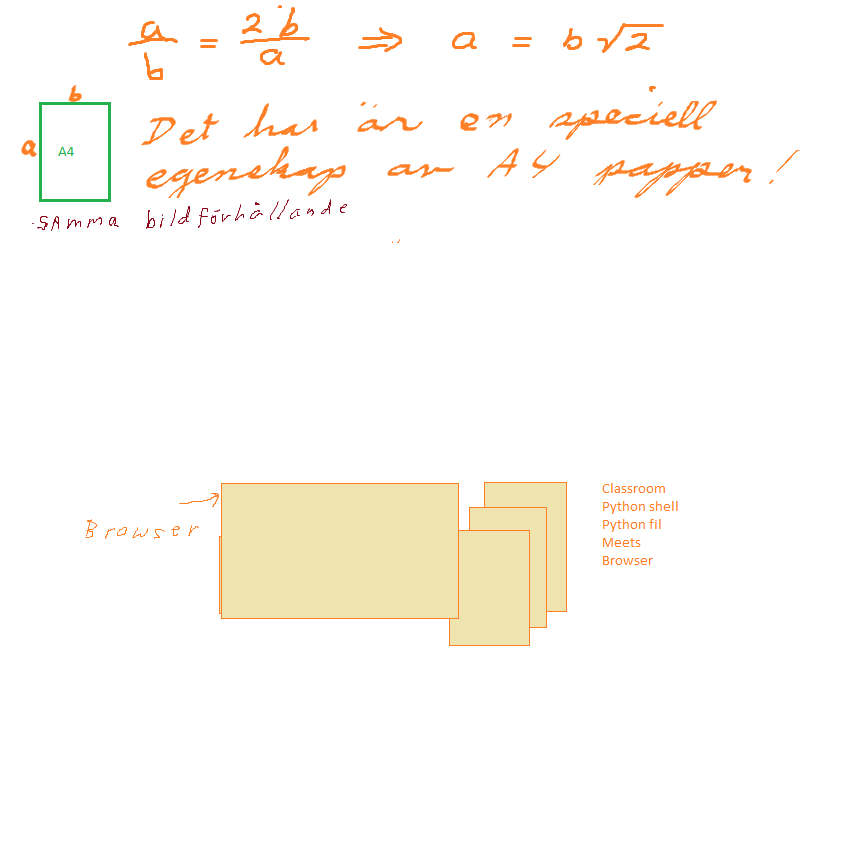 a/b = 2b/a ⇒ a = b√2
b
a
A4
Det har är en speciell
egenskap av A4 papper!
SAmma bildförhållande
Classroom
Python shell
Python fil
Meets
Browser
Browser